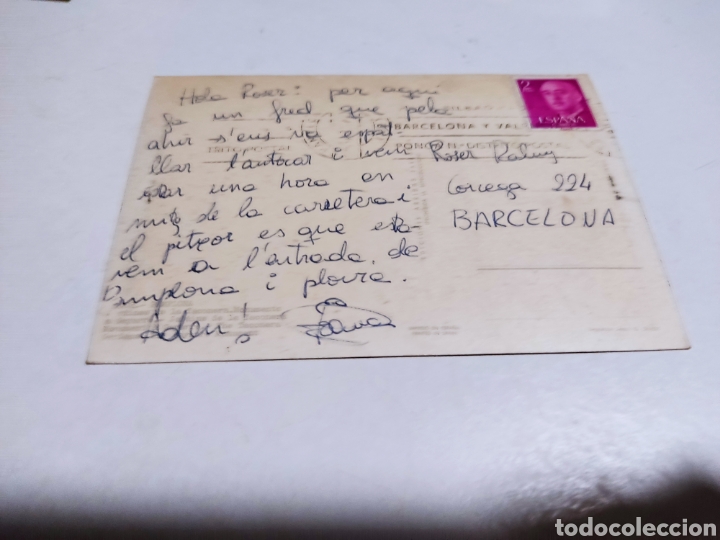 Hola Roser: per aquí
fa un fred que pela
ahir s'ens va espat-
llar l'autocar i
una hora en
mitg de la carretera i
el pitjor es que esta-
vem a l'entrada de
Pamplona i plovia.
Adeu!
2
ESPAÑA
BARCELONA Y VAL
Roser
Corcega 224
BARCELONA
todocoleccion